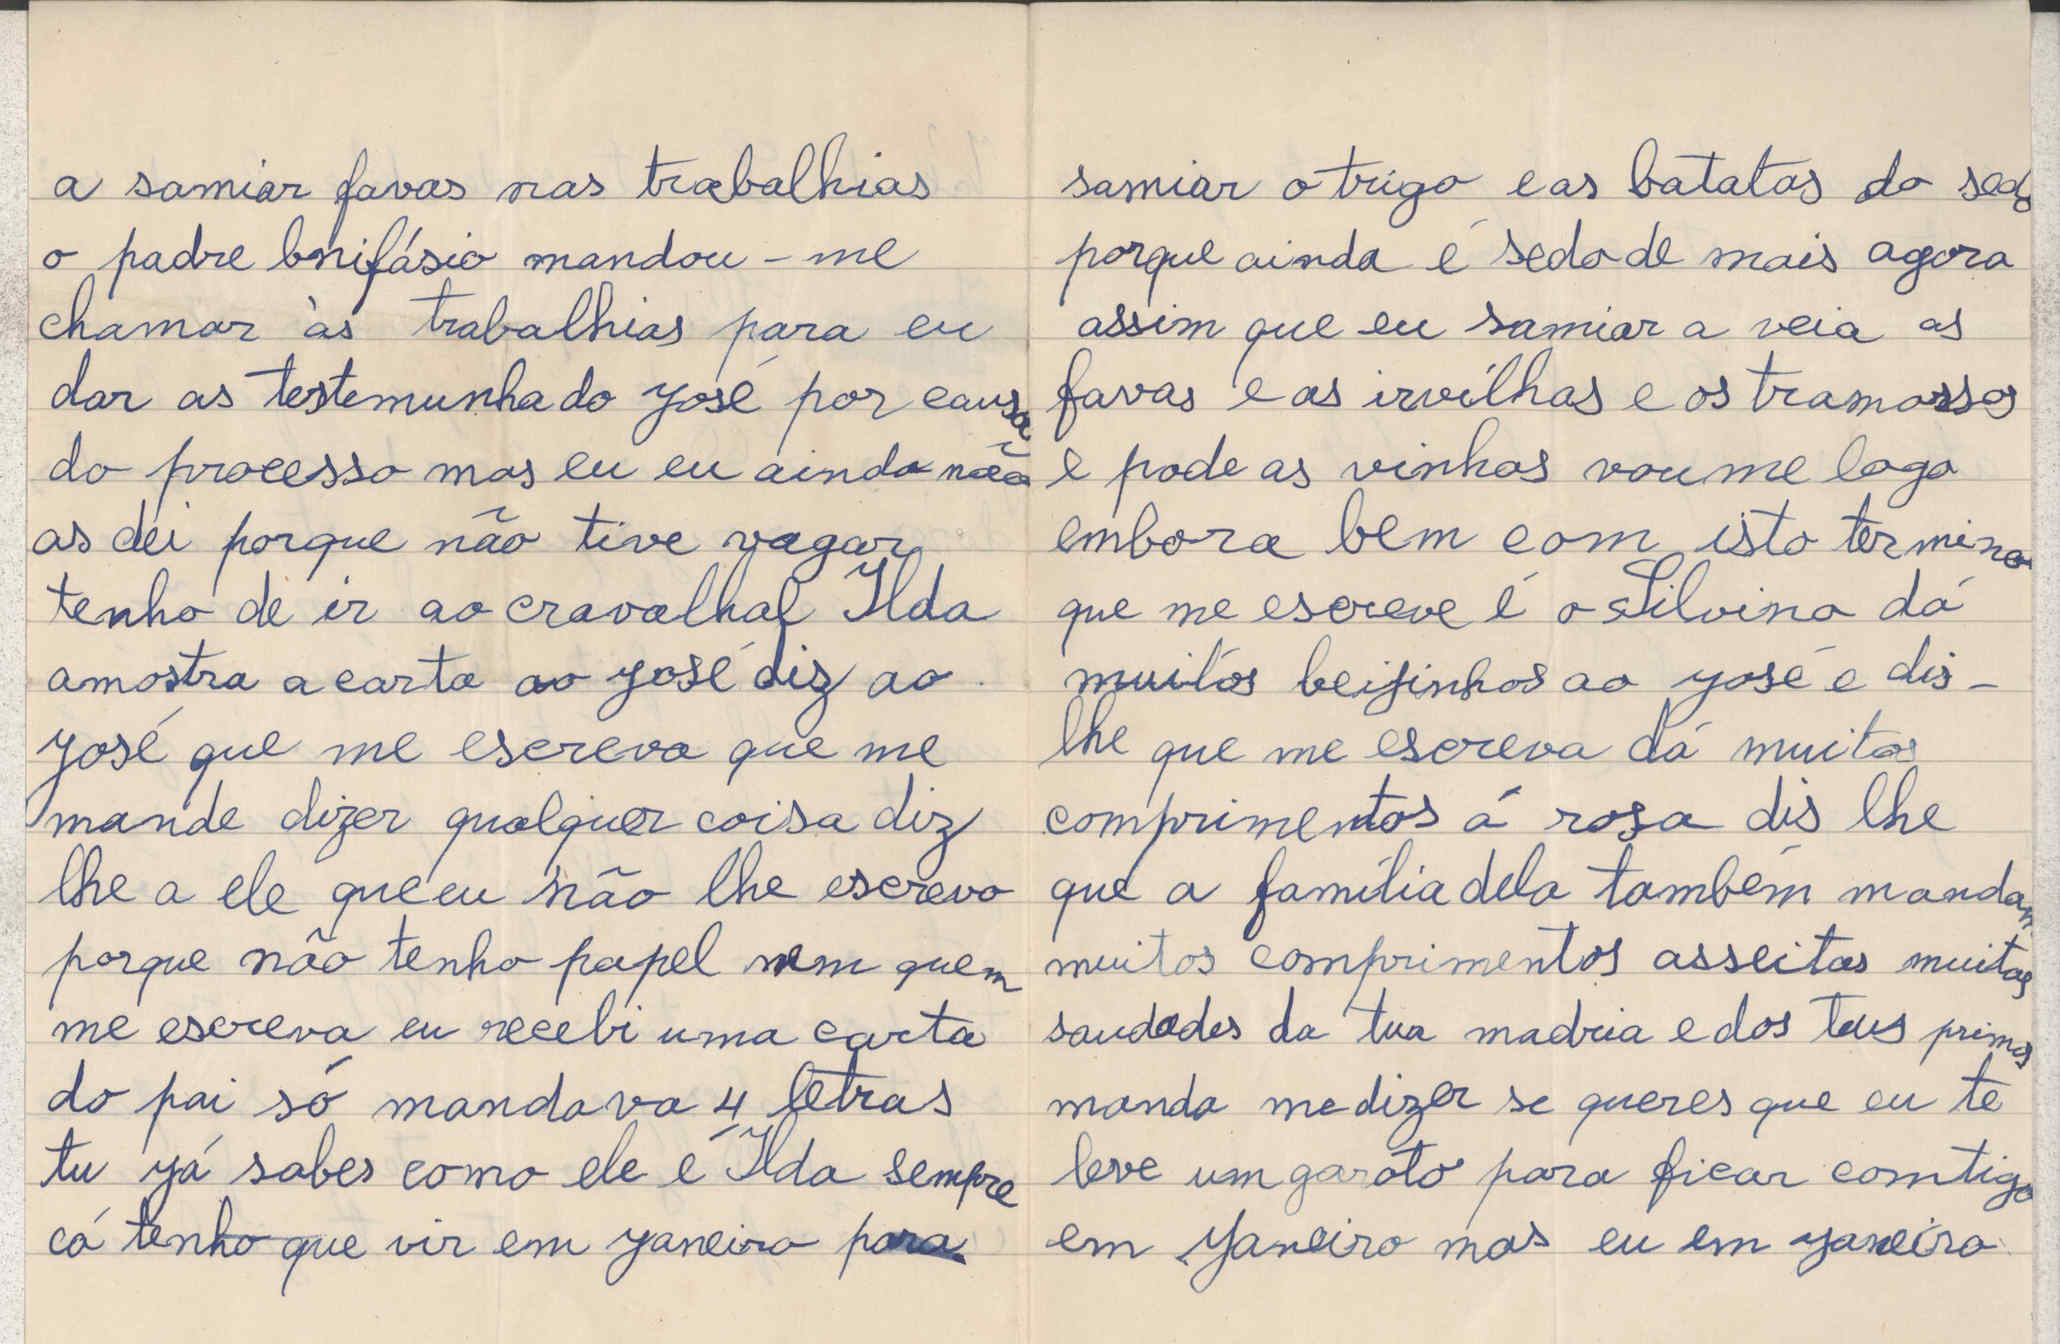 a samiar favas nas trabalhias
o padre bnifásio mandou - me
chamar às trabalhias para eu
dar as testemunha do yosé por causa
do processo mas eu eu ainda não
as dei porque não tive vagar
tenho de ir ao cravalhal Ilda
amostra a carta ao yosé diz ao
yosé que me escreva que me
mande dizer qualquer coisa diz
lhe a ele que eu não lhe escrevo
porque não tenho papel nem quem
me escreva eu recebi uma carta
do pai só mandava 4 letras
tu yá sabes como ele é Ilda sempre
cá tenho que vir em yaneiro para
samiar o trigo e as batatas do sedo
porque ainda é sedo de mais agora
assim que eu samiar a veia as
favas e as irvilhas e os tramossos
e pode as vinhas vou me logo
embora bem com isto termino
que me escreve é o Silvino dá
muitos beijinhos ao yosé e dis -
lhe que me escreva dá muitos
comprimentos á rosa dis lhe
que a família dela também mandam
muitos comprimentos asseitas muitas
saudades da tua madria e dos teus primos
manda me dizer se queres que eu te
leve um garoto para ficar comtigo
em yaneiro mas eu em yaneiro